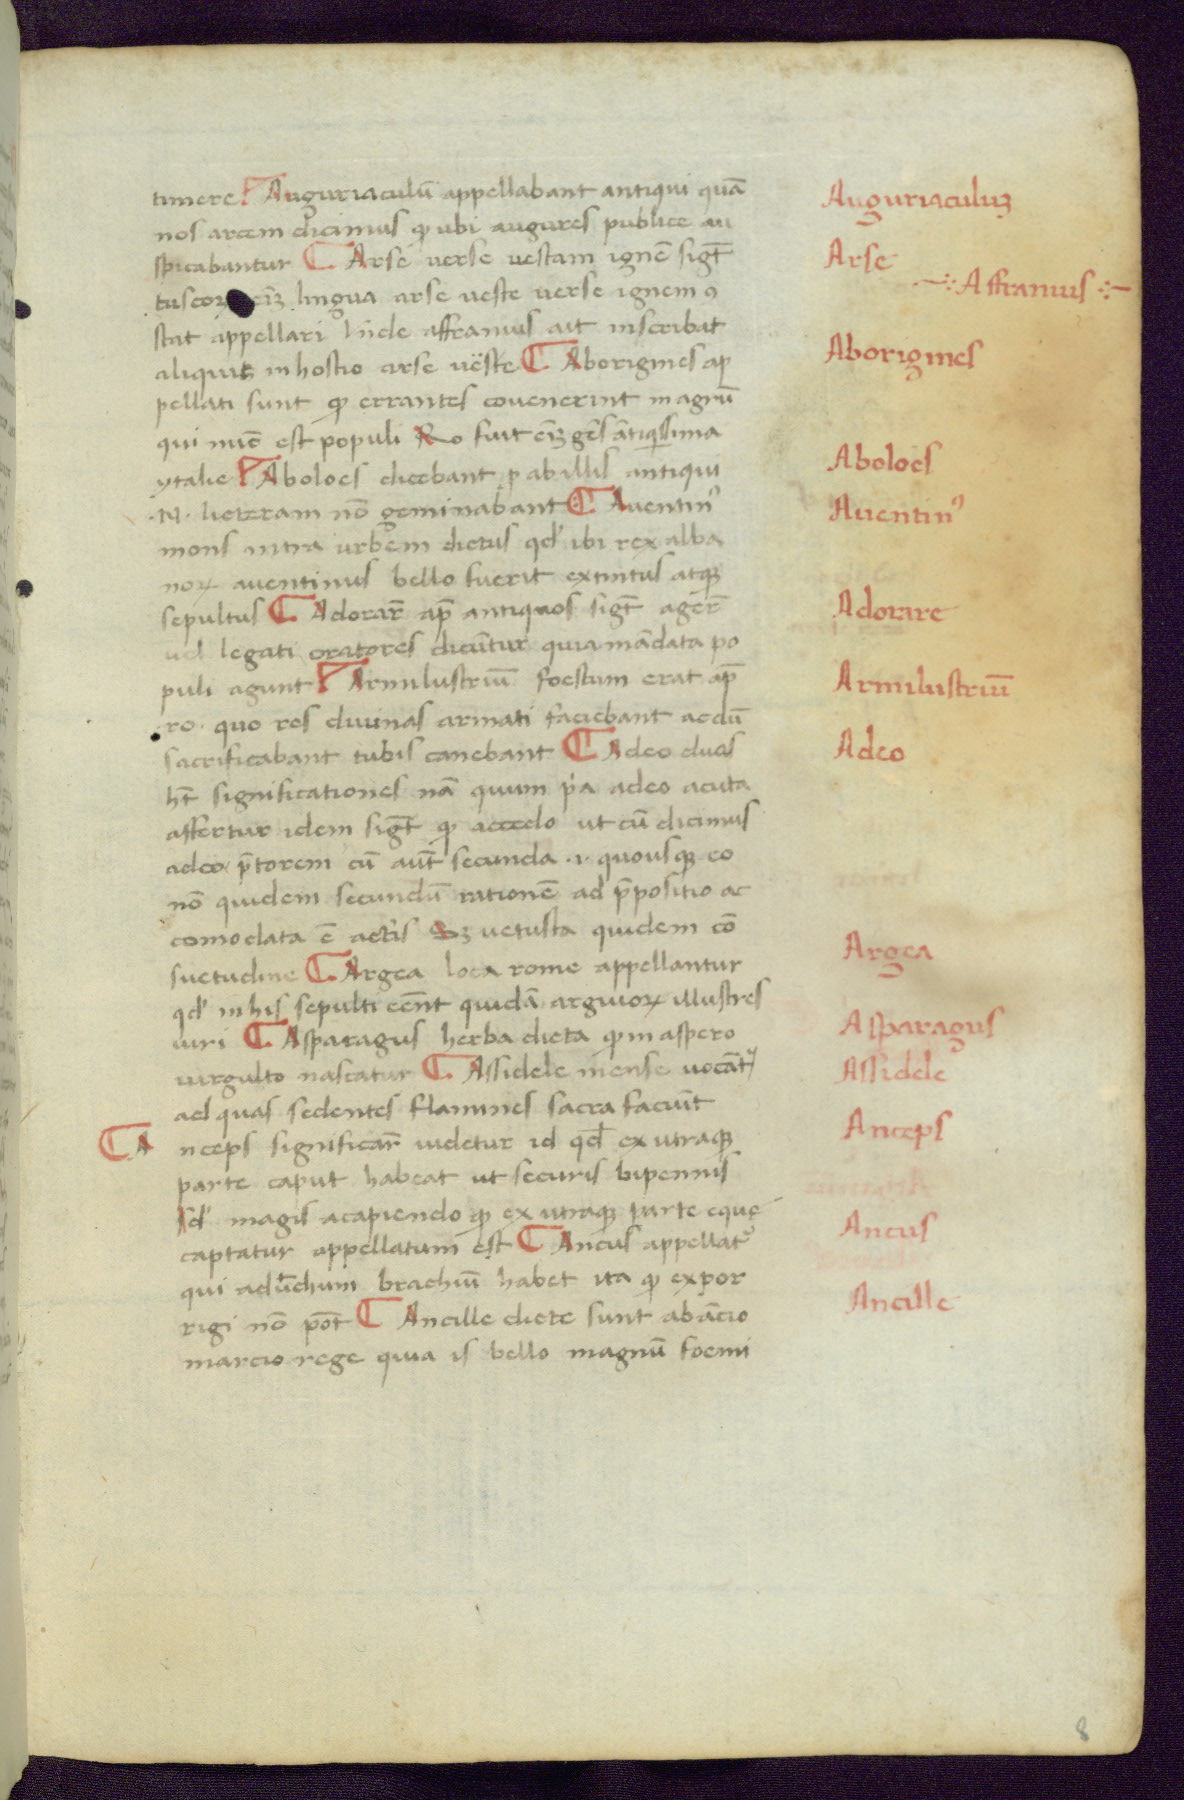 timere Auguriaculū appellabant antiqui quā
nos arcem dicimus ꝙ ubi augures publice au
spicabantur Arse verse vestam ignē sigt̄
tuscoꝝ eīꝫ lingua arse veste verse ignem ꝯ
stat appellari Inde affranius ait inscribat
aliquis in hostio arse veste Aborigines ap
pellati sunt ꝙ errantes covenerint in agrū
qui nūc est populi Ro fuit eīꝫ gēs ātiqissima
ytalie Aboloes dicebant ꝓ ab illis antiqui
.N. litteram nō geminabant Aventinꝰ
mons intra urbem dictus qd' ibi rex alba
noꝝ aventinus bello fuerit extintus atqꝫ
sepultus Adorar̄ ap̄ antiquos sigt̄ ager̄
ud legati oratores dicūtur quia mādata po
puli agunt Armilustriū foestum erat ap̄
ro. quo res divinas armati faciebant ac dū
sacrificabant tubis canebant Adeo duas
ht̄ significationes nā quum pͥa adeo acuta
affertur idem sigt̄ ꝙ accedo ut cū dicimus
adeo p̄torem cū aūt secunda .i. quousqꝫ eo
nō quidem secundū rationē ad p̄positio ac
comodata ē actis Sꝫ vetusta quidem cō
suetudine Argea loca rome appellantur
qd' in his sepulti eēnt quidā arguioꝝ illustres
viri Asparagus herba dicta ꝙ in aspero
virgulto nascatur Assidele mense vocātᷣ
ad quas sedentes flamines sacra faciūt
A nceps significar̄ videtur id qd̄ ex utraqꝫ
parte caput habeat ut securis bipennis
Sd' magis a capiendo ꝙ ex utraqꝫ parte eque
captatur appellatum est Ancus appellatᷣ
qui adūchum brachiū habet ita ꝙ expor
rigi nō pōt Ancille dicte sunt ab ācio
marcio rege quia is bello magnū foemi
Auguriaculuꝫ
Arse
Affranius
Aborigines
Aboloes
Auentinꝰ
Adorare
Armilustriū
Adeo
Argea
Asparagus
Assidele
Anceps
Ancus
Ancille
8